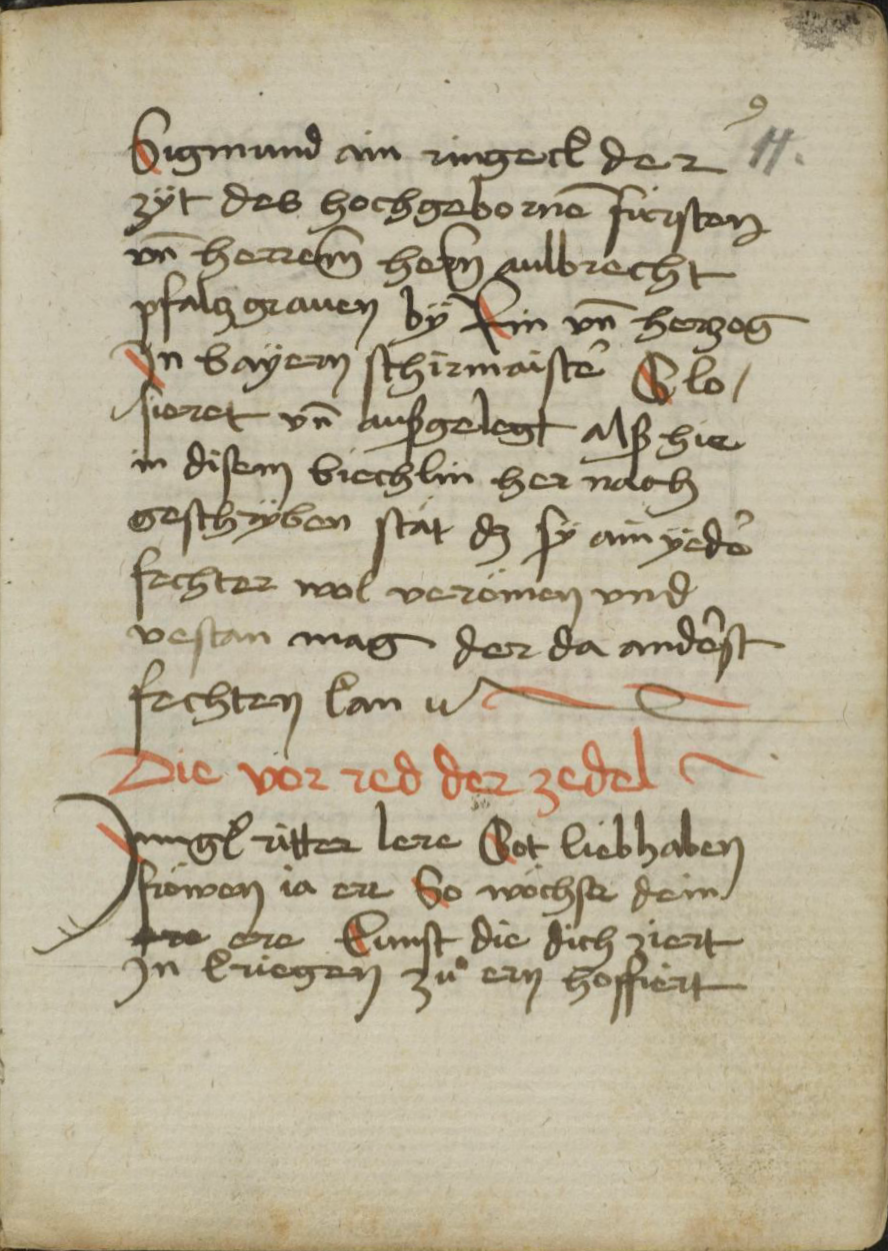 9
11.
Sigmund ain ringeck der
zÿt des hochgebornē fürsten
vn̄ herrem hern aulbrecht
pfalczgrauen bÿ Rin vn̄ herczog
In bayern schirmaiste᷑ Glo/
sieret vn̄ außgelegt alß hie
in disem biechlin her nach
geschrÿben stät dz sÿ ain ÿede᷑
fechter wol veromen vnd
vestan mag der da ande᷑st
fechten kan
Die vor red der zedel
Jungk ritter lere Got lieb haben
fröwen ia ere So wöchst dein
ere Kunst die dich ziert
In kriegen zů ern hoffiert